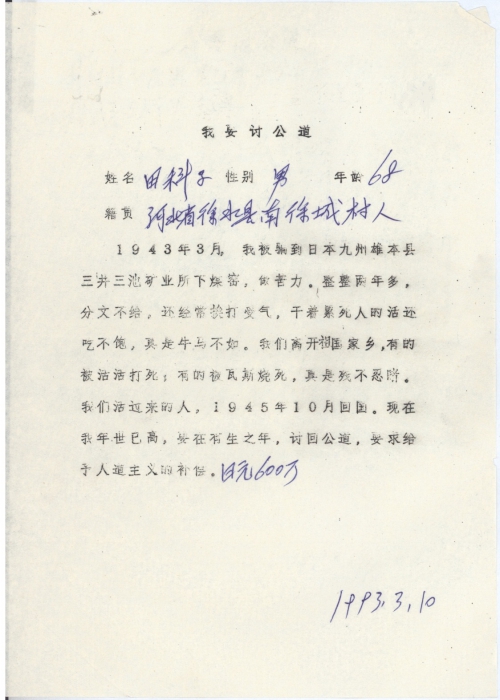 我要讨公道
姓名 田科子 性别 男 年龄 68
籍贯 河北省徐水县南徐城村人
1943年3月，我被骗到日本九州雄本县
三井三池矿业所下煤窑，做苦力。整整两年多，
分文不给，还经常挨打受气，干着累死人的活还
吃不饱，真是牛马不如。我们离开祖国家乡，有的
被活活打死；有的被瓦斯烧死，真是残不忍睹。
我们活过来的人，1945年10月回国。现在
我年世已高，要在有生之年，讨回公道，要求给
予人道主义的补偿。日元600万
1993.3.10